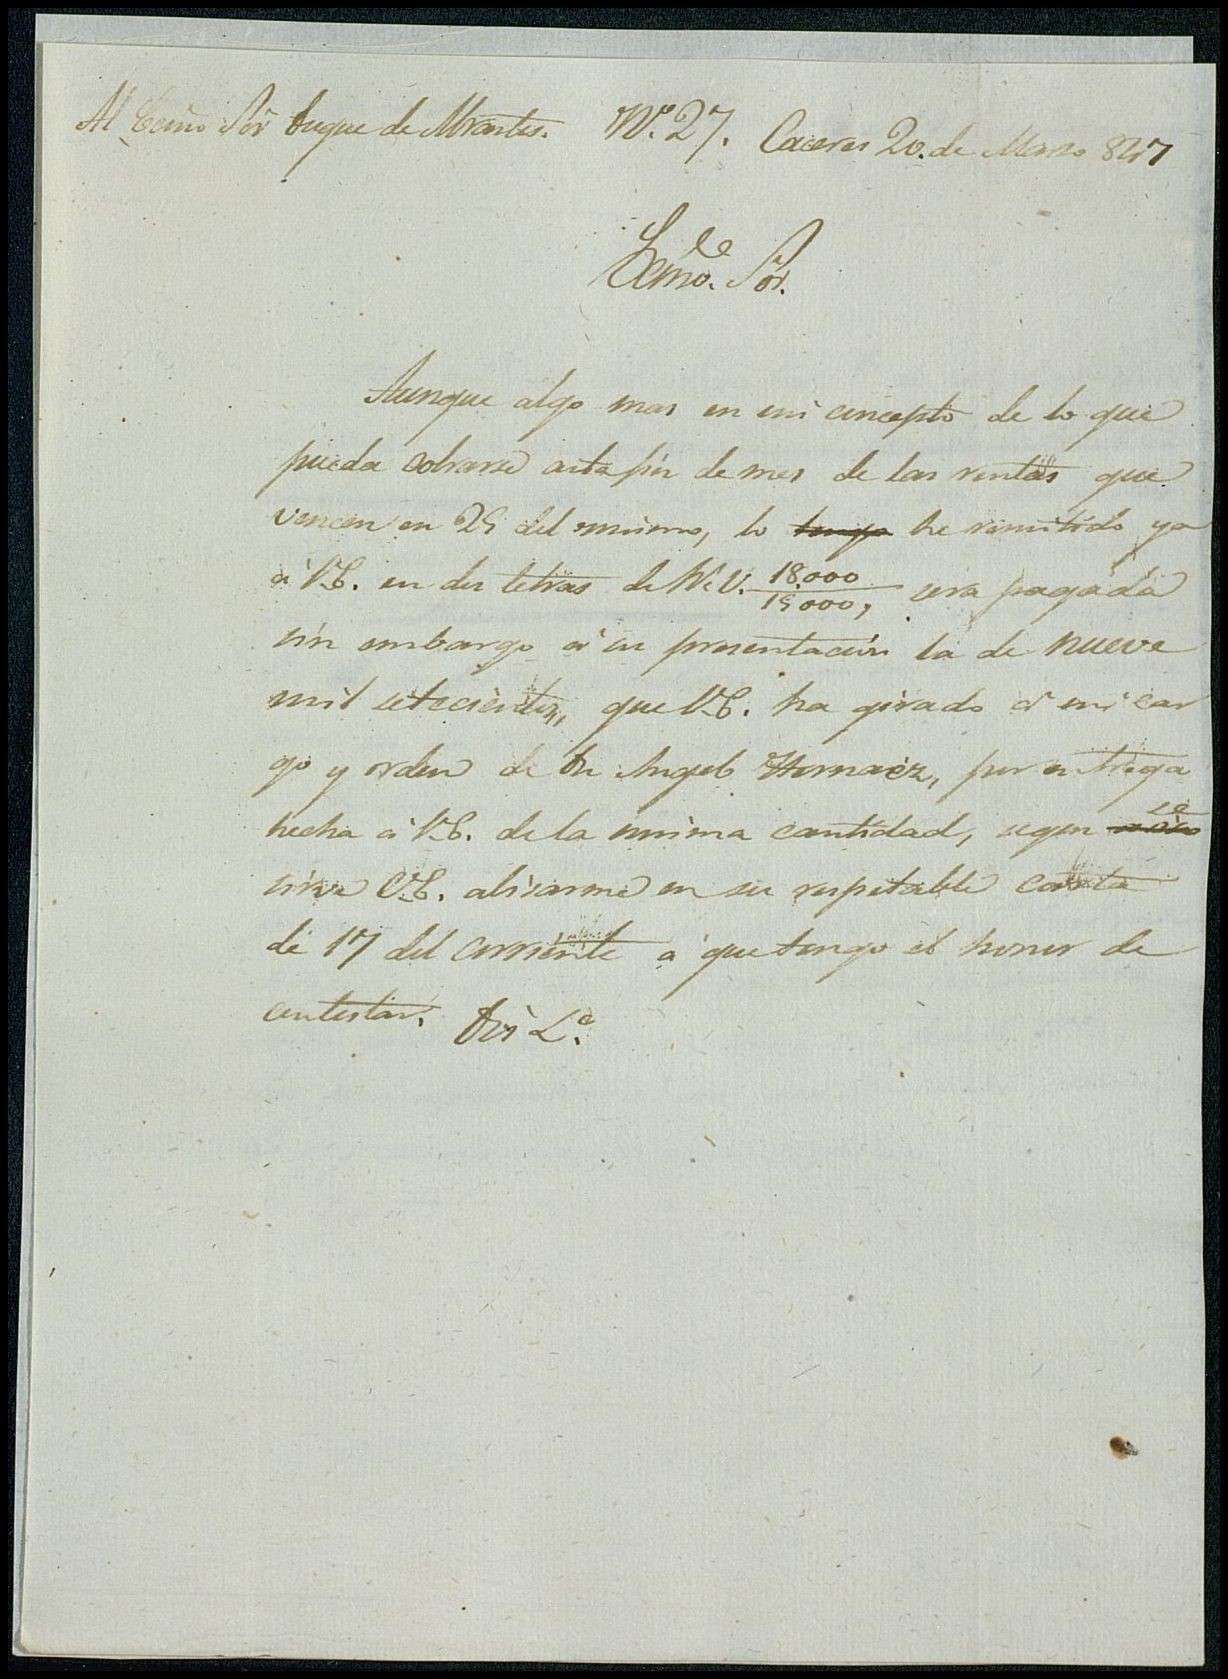 Al Ecmo Sor Duque de Abrantes. Nº. 27. Caceres 20. de Marzo 847
Ecmo. Sor.
Aunque algo mas en mi concepto de lo que
pueda cobrarse asta fin de mes de las rentas que
vencen en 25 del mismo, lo tengo he remitido ya
á V.E. en dos letras de Rs. V. 18.000
15.000, sera pagada
sin embargo á su presentacion la de nueve
mil setecientos, que V.E. ha girado á mi car
go y orden de Dn Angel Hernaez, por entrega
hecha á V.E. de la misma cantidad, segun se
sirve V.E. abisarme en su respetable carta
de 17 del corriente a que tengo el honor de
contestar. Dios &.ª